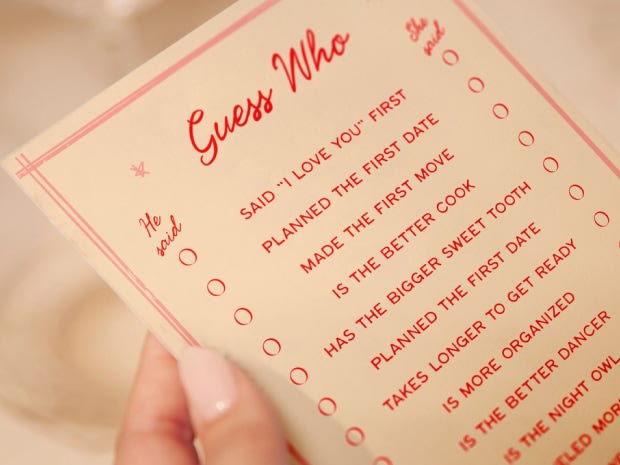 Guess Who
He said
She said
SAID "I LOVE YOU" FIRST
PLANNED THE FIRST DATE
MADE THE FIRST MOVE
IS THE BETTER COOK
HAS THE BIGGER SWEET TOOTH
PLANNED THE FIRST DATE
TAKES LONGER TO GET READY
IS MORE ORGANIZED
IS THE BETTER DANCER
IS THE NIGHT OWL